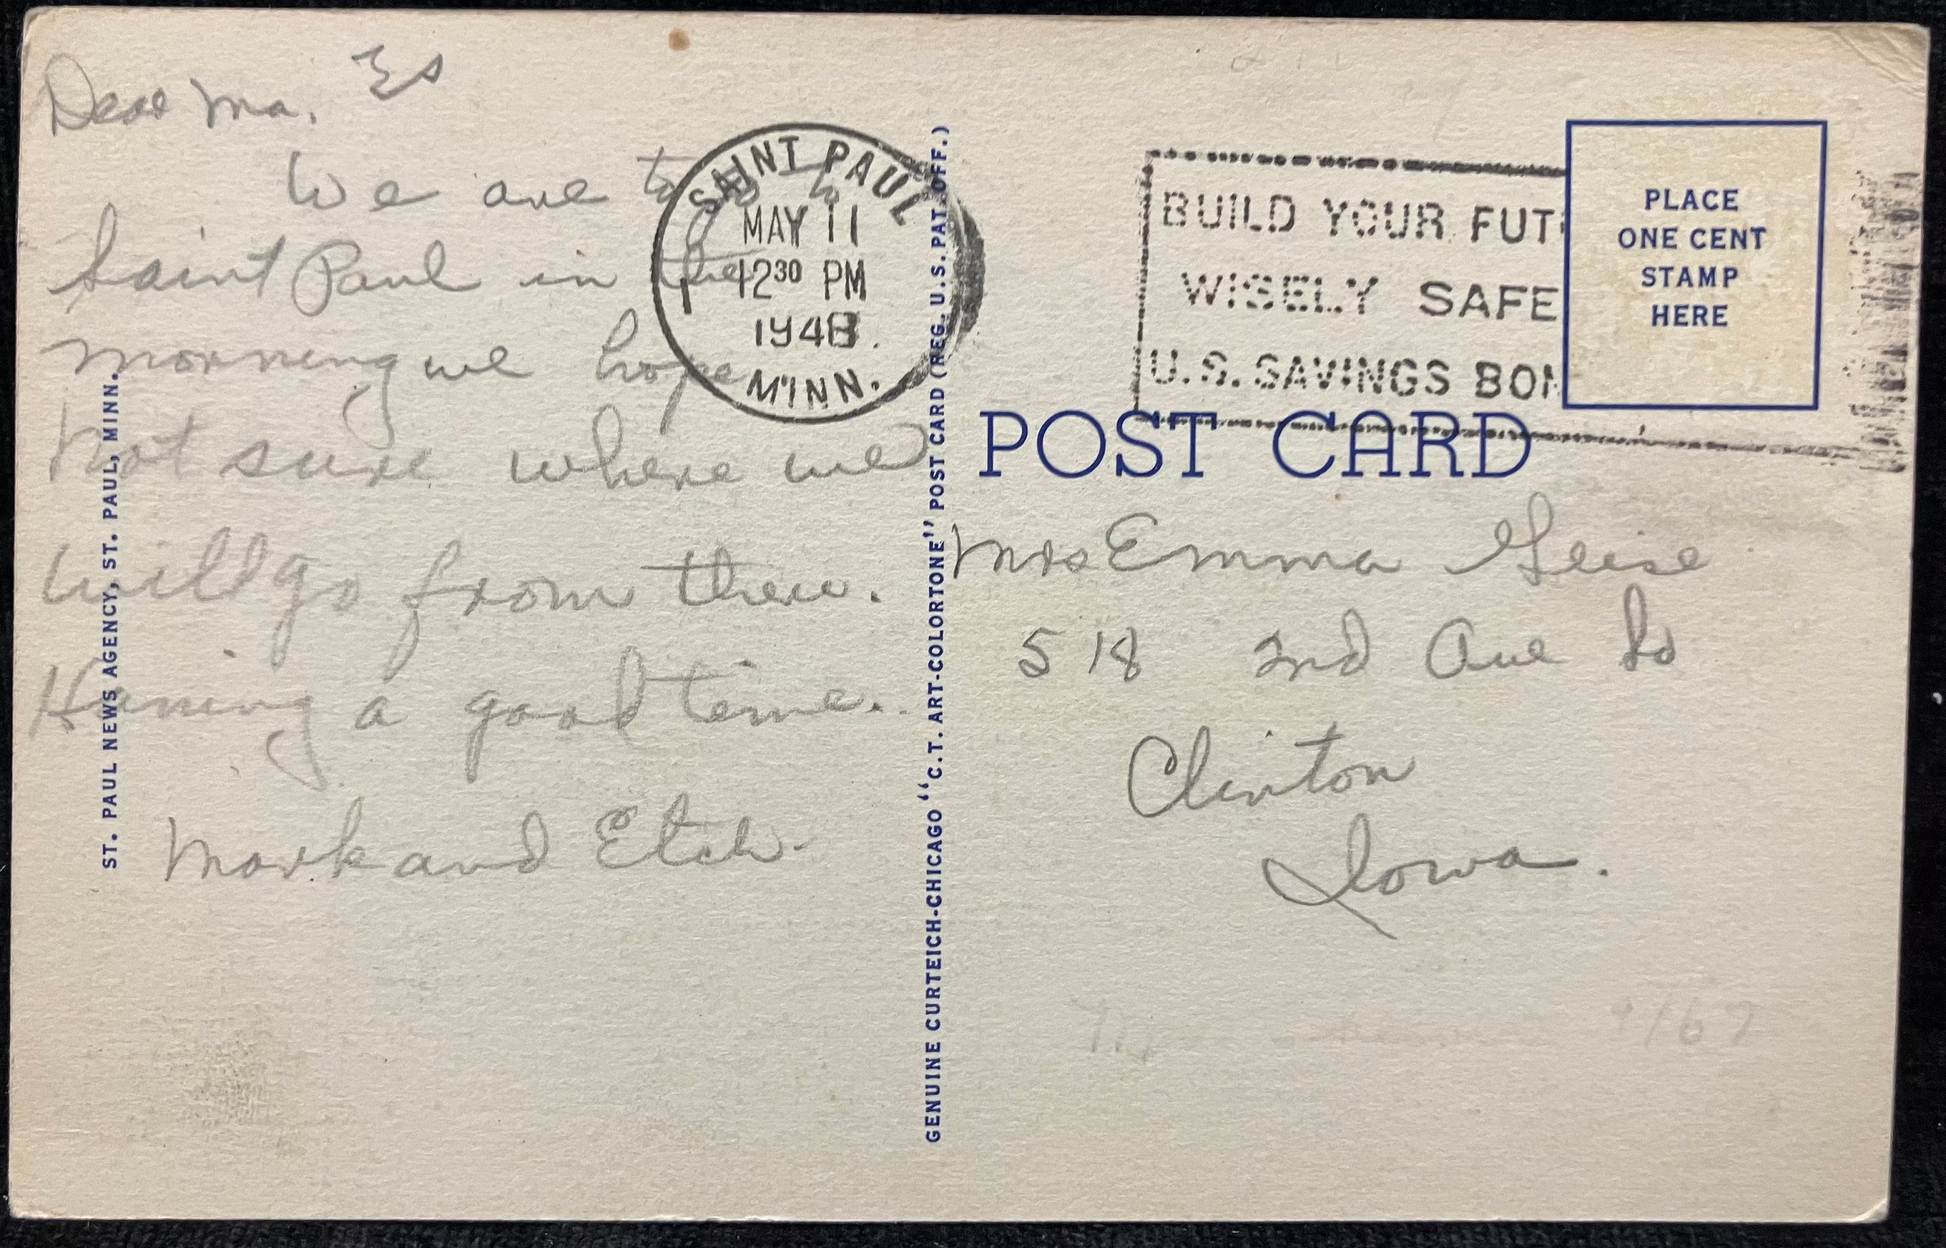 Dear Ma.
We are to go to
Saint Paul in the
morning we hope
Not sure where we
will go from there.
Having a good time.
Mark and Etch.
SAINT PAUL
MAY 11
12 30 PM
1948
MINN.
BUILD YOUR FUT
WISELY SAFE
U.S. SAVINGS BON
PLACE
ONE CENT
STAMP
HERE
POST CARD
Mrs Emma Geise
518 2nd Ave So
Clinton
Iowa.
ST. PAUL NEWS AGENCY, ST. PAUL, MINN.
GENUINE CURTEICH-CHICAGO "C.T. ART-COLORTONE" POST CARD (REG. U.S. PAT. OFF.)